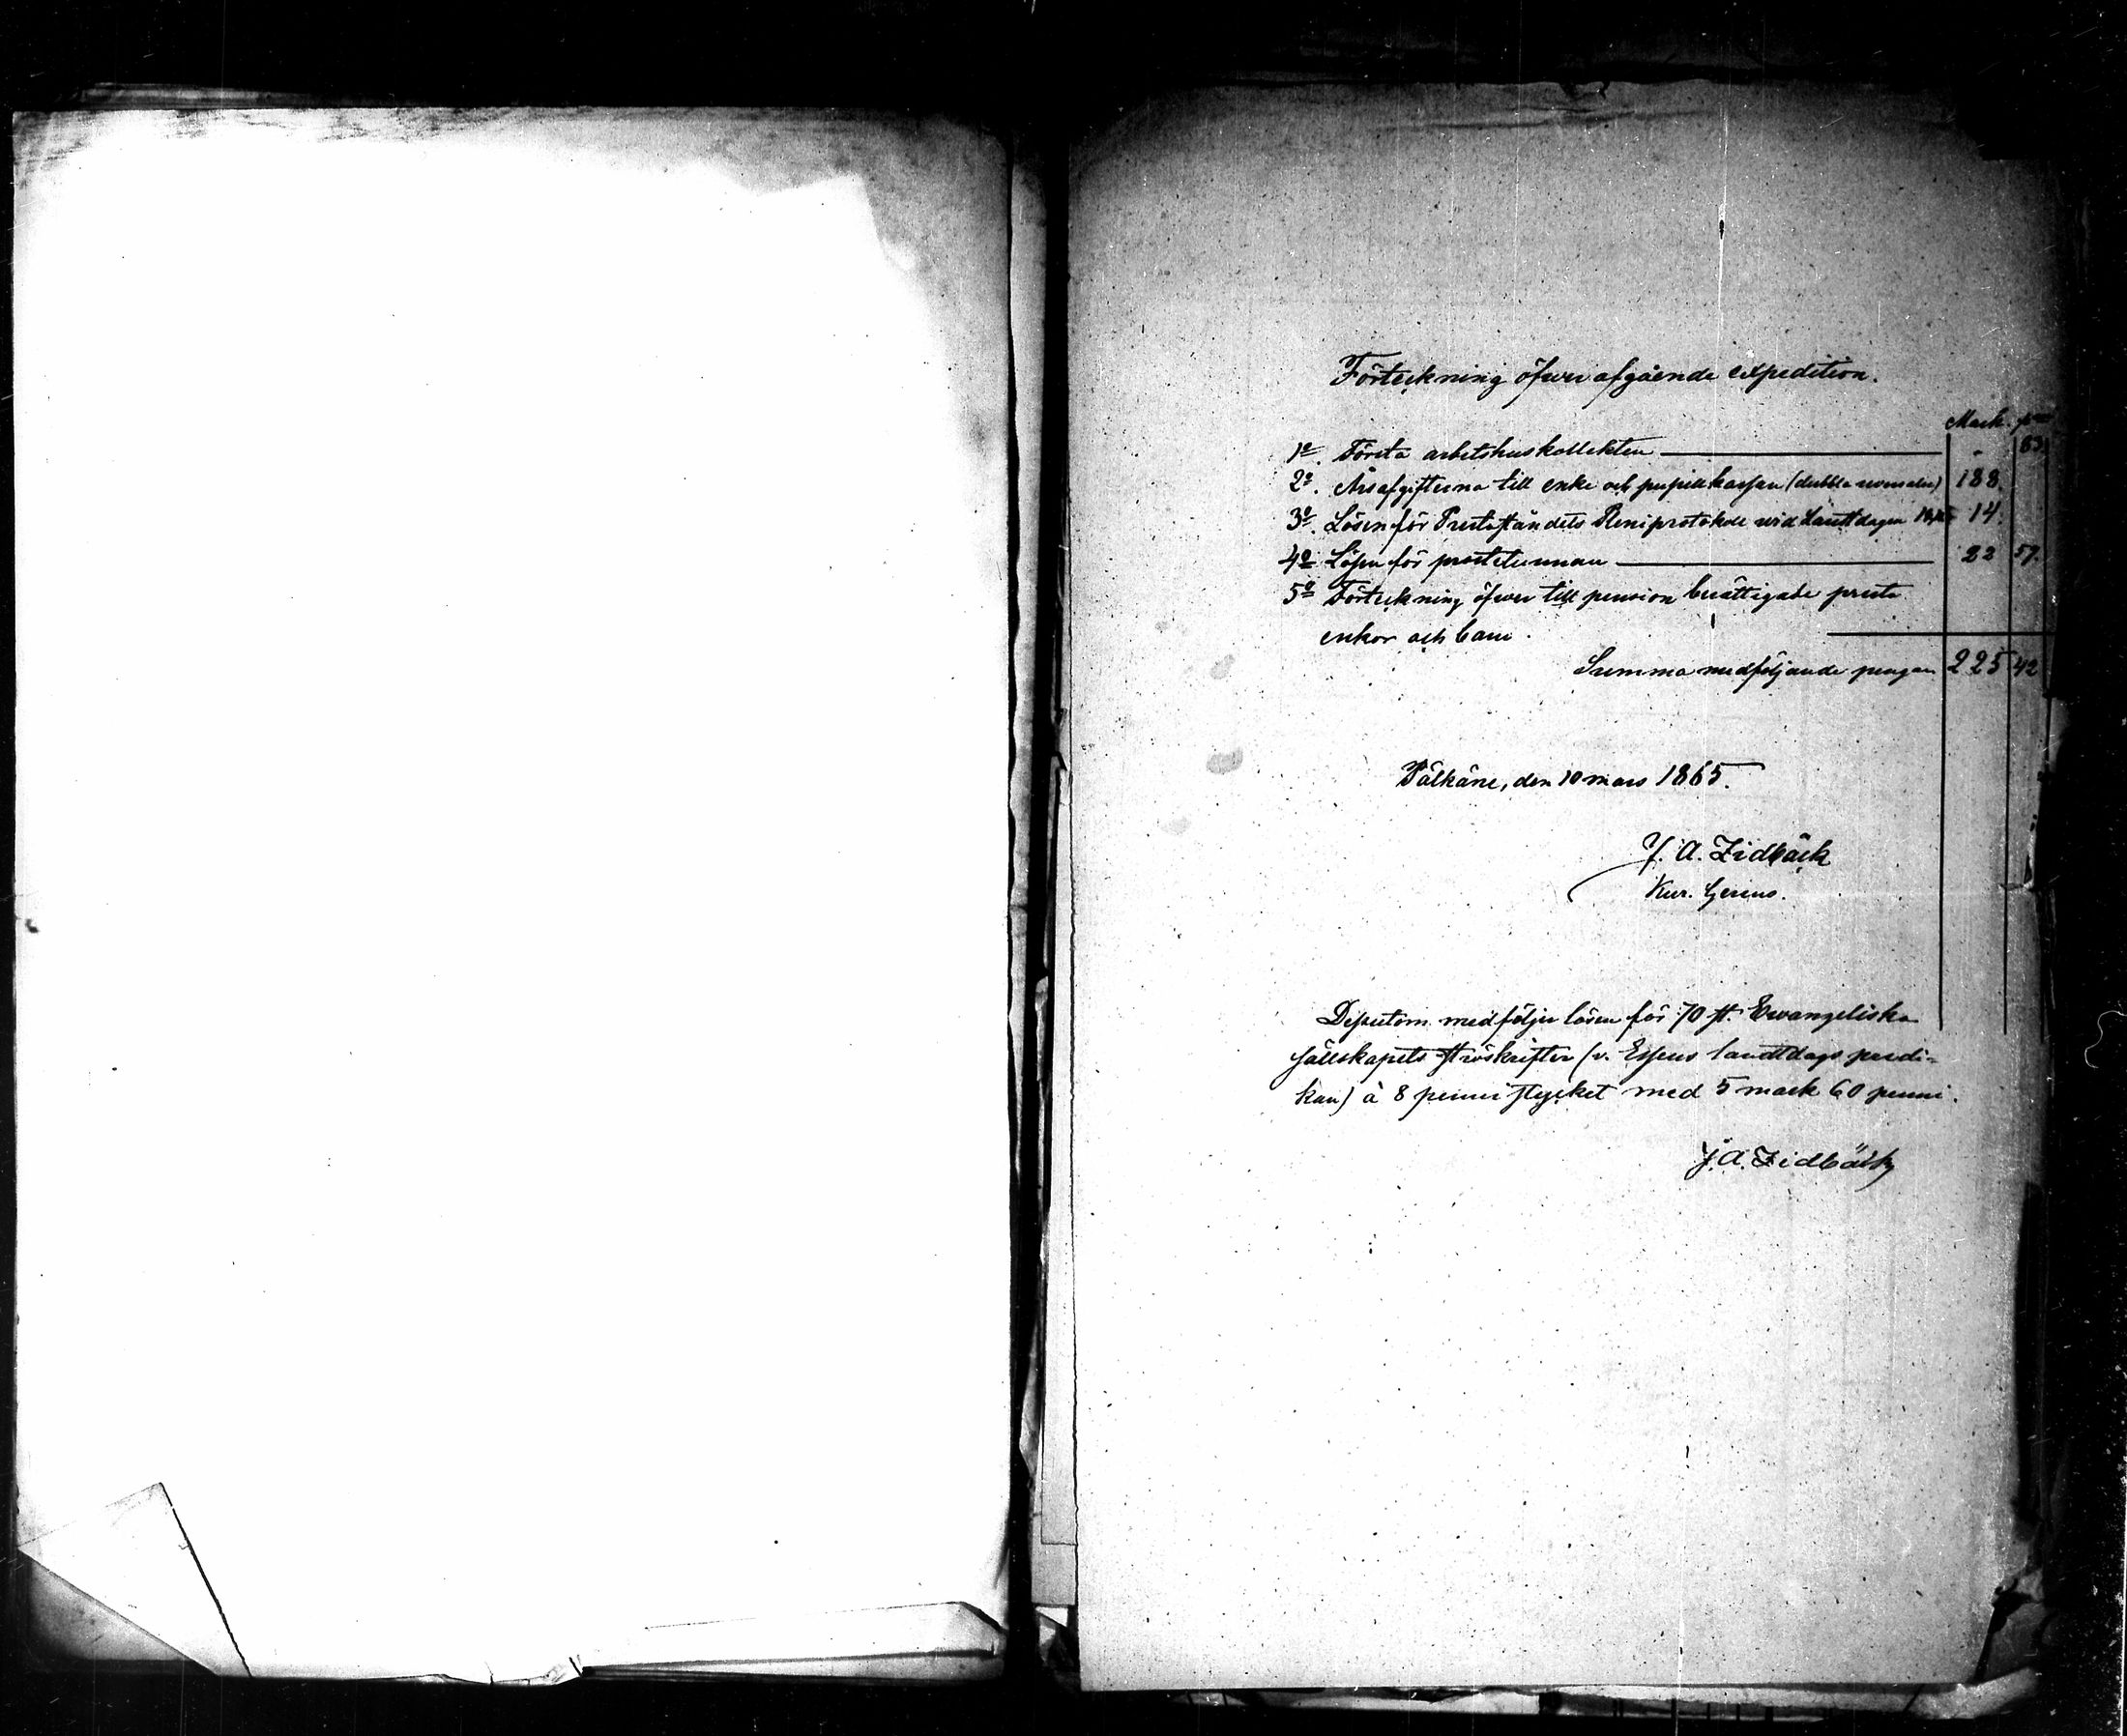 Förteckning öfwer afgående expedition.
Mark. p:ni
1o. Första arbetshuskollekten - 83.
2o. Årsafgifterna till enke och pupillkassan (dubbla reversaler) 188.
3o. Lösen för Presteståndets Pleniprotokoll wid Landtdagen 14.
4o. Lösen för prostetunnan 22 57.
5o. Förteckning öfwer till pension berättigade preste
enkor och barn.
Summa medföljande pengar 225 42
Pälkäne, den 10 mars 1865.
J. A. Lidbäck
Kur. Gerens.
Dessutom medföljer lösen för 70 st. Ewangeliska
sällskapets ströskrifter (v. Essens landtdags predi-
kan) à 8 penni stycket med 5 mark 60 penni.
J. A. Lidbäck